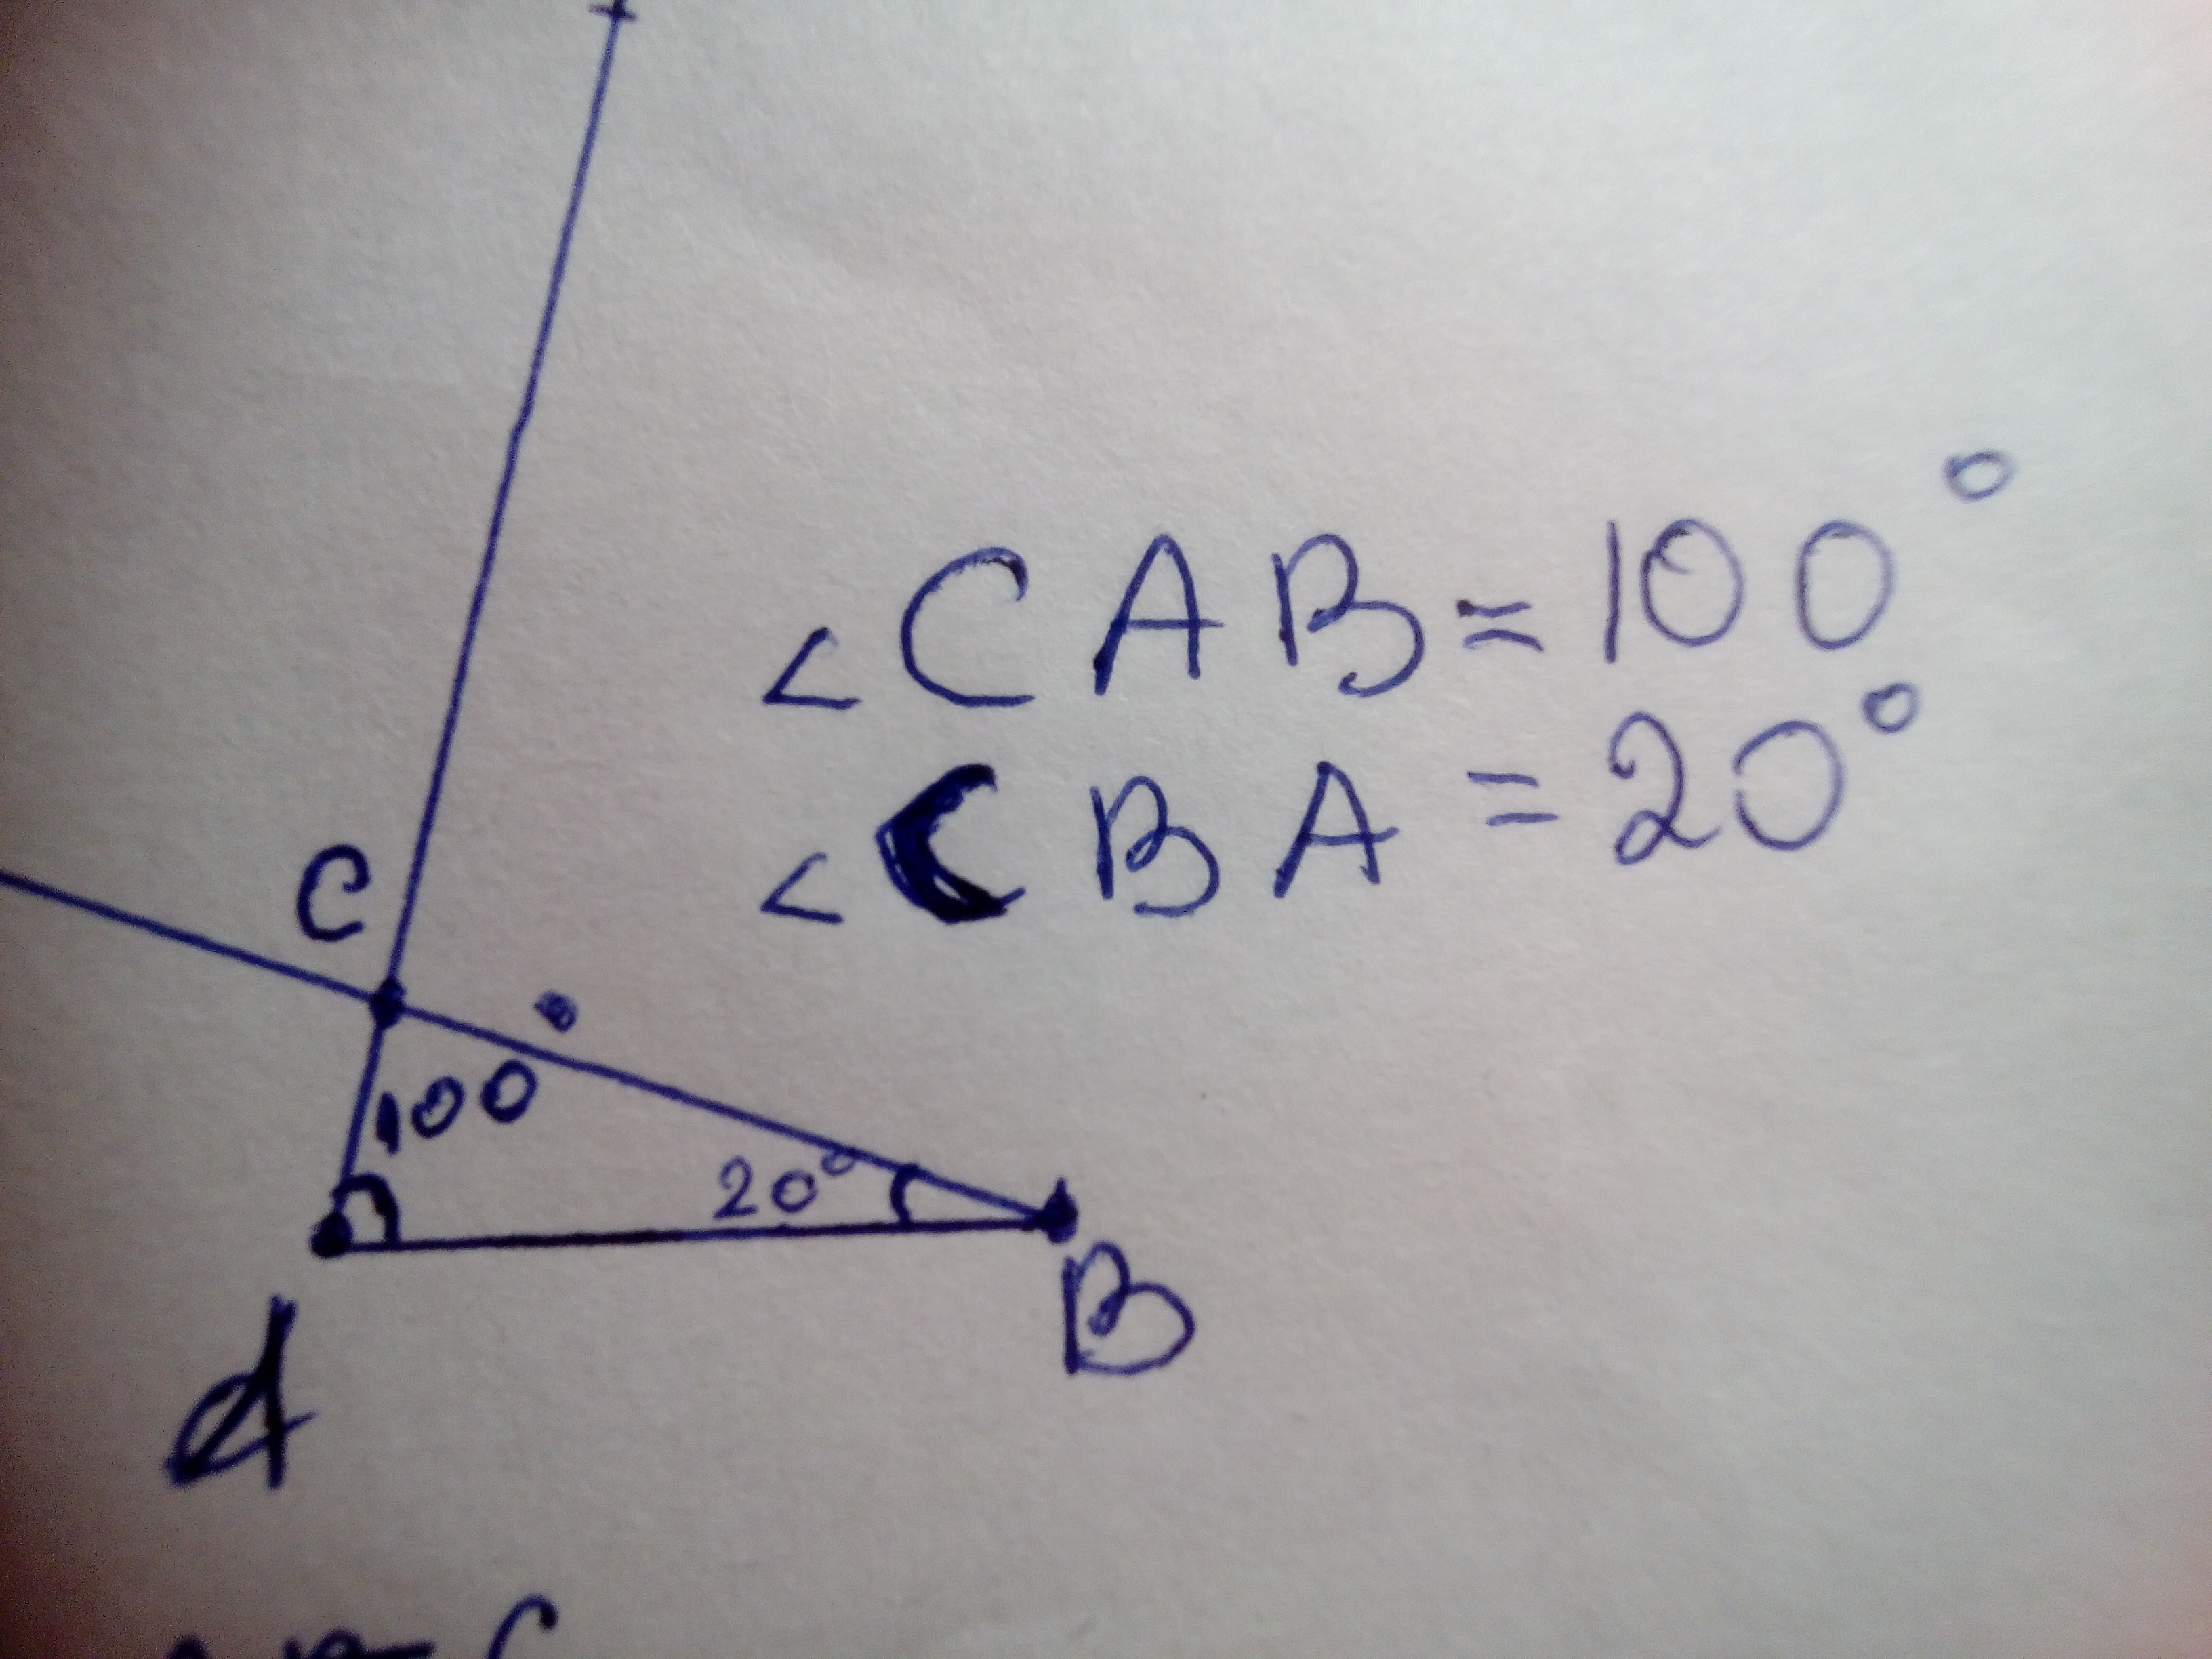 <CAB=100°
<CBA=20°
C
100°
20°
A
B